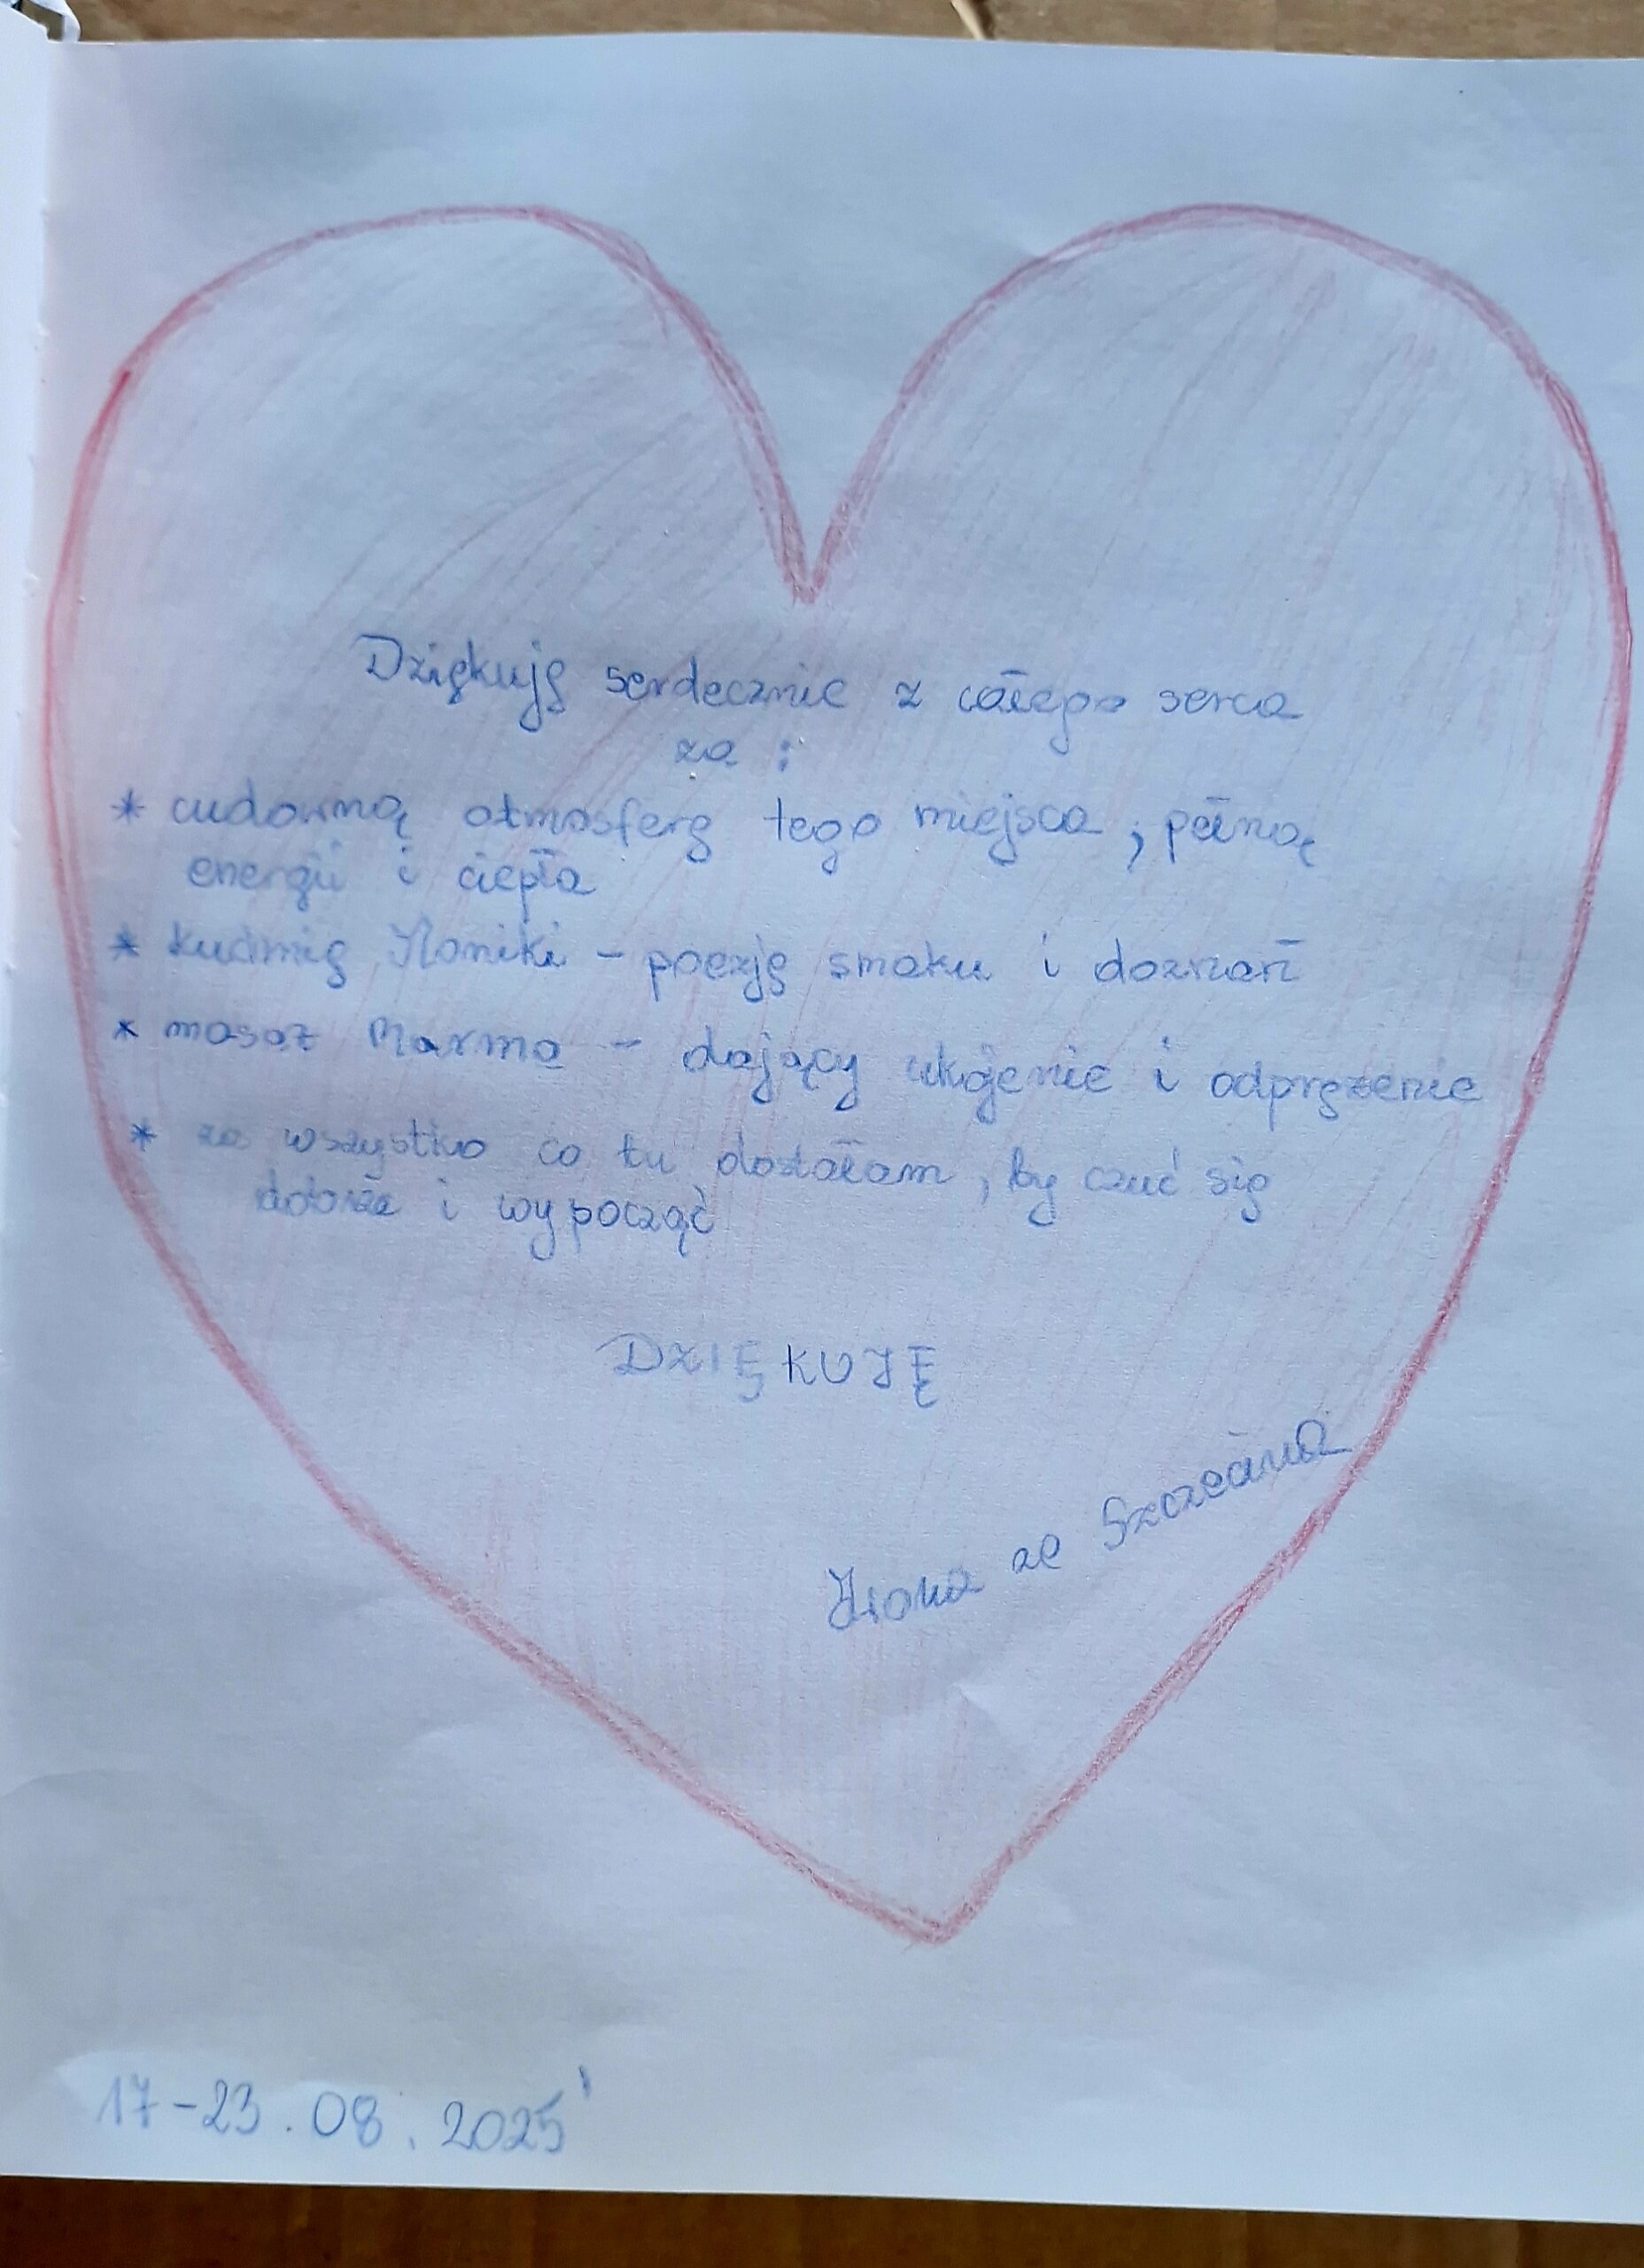 Dziękuję serdecznie z całego serca
za :
* cudowną atmosferę tego miejsca, pełną
energii i ciepła
* kuchnię Moniki - poezję smaku i doznań
* masaż Marma - dający ukojenie i odprężenie
* za wszystko co tu dostałam, by czuć się
dobrze i wypocząć
DZIĘKUJĘ
Ilona ze Szczecina
17-23.08.2025'